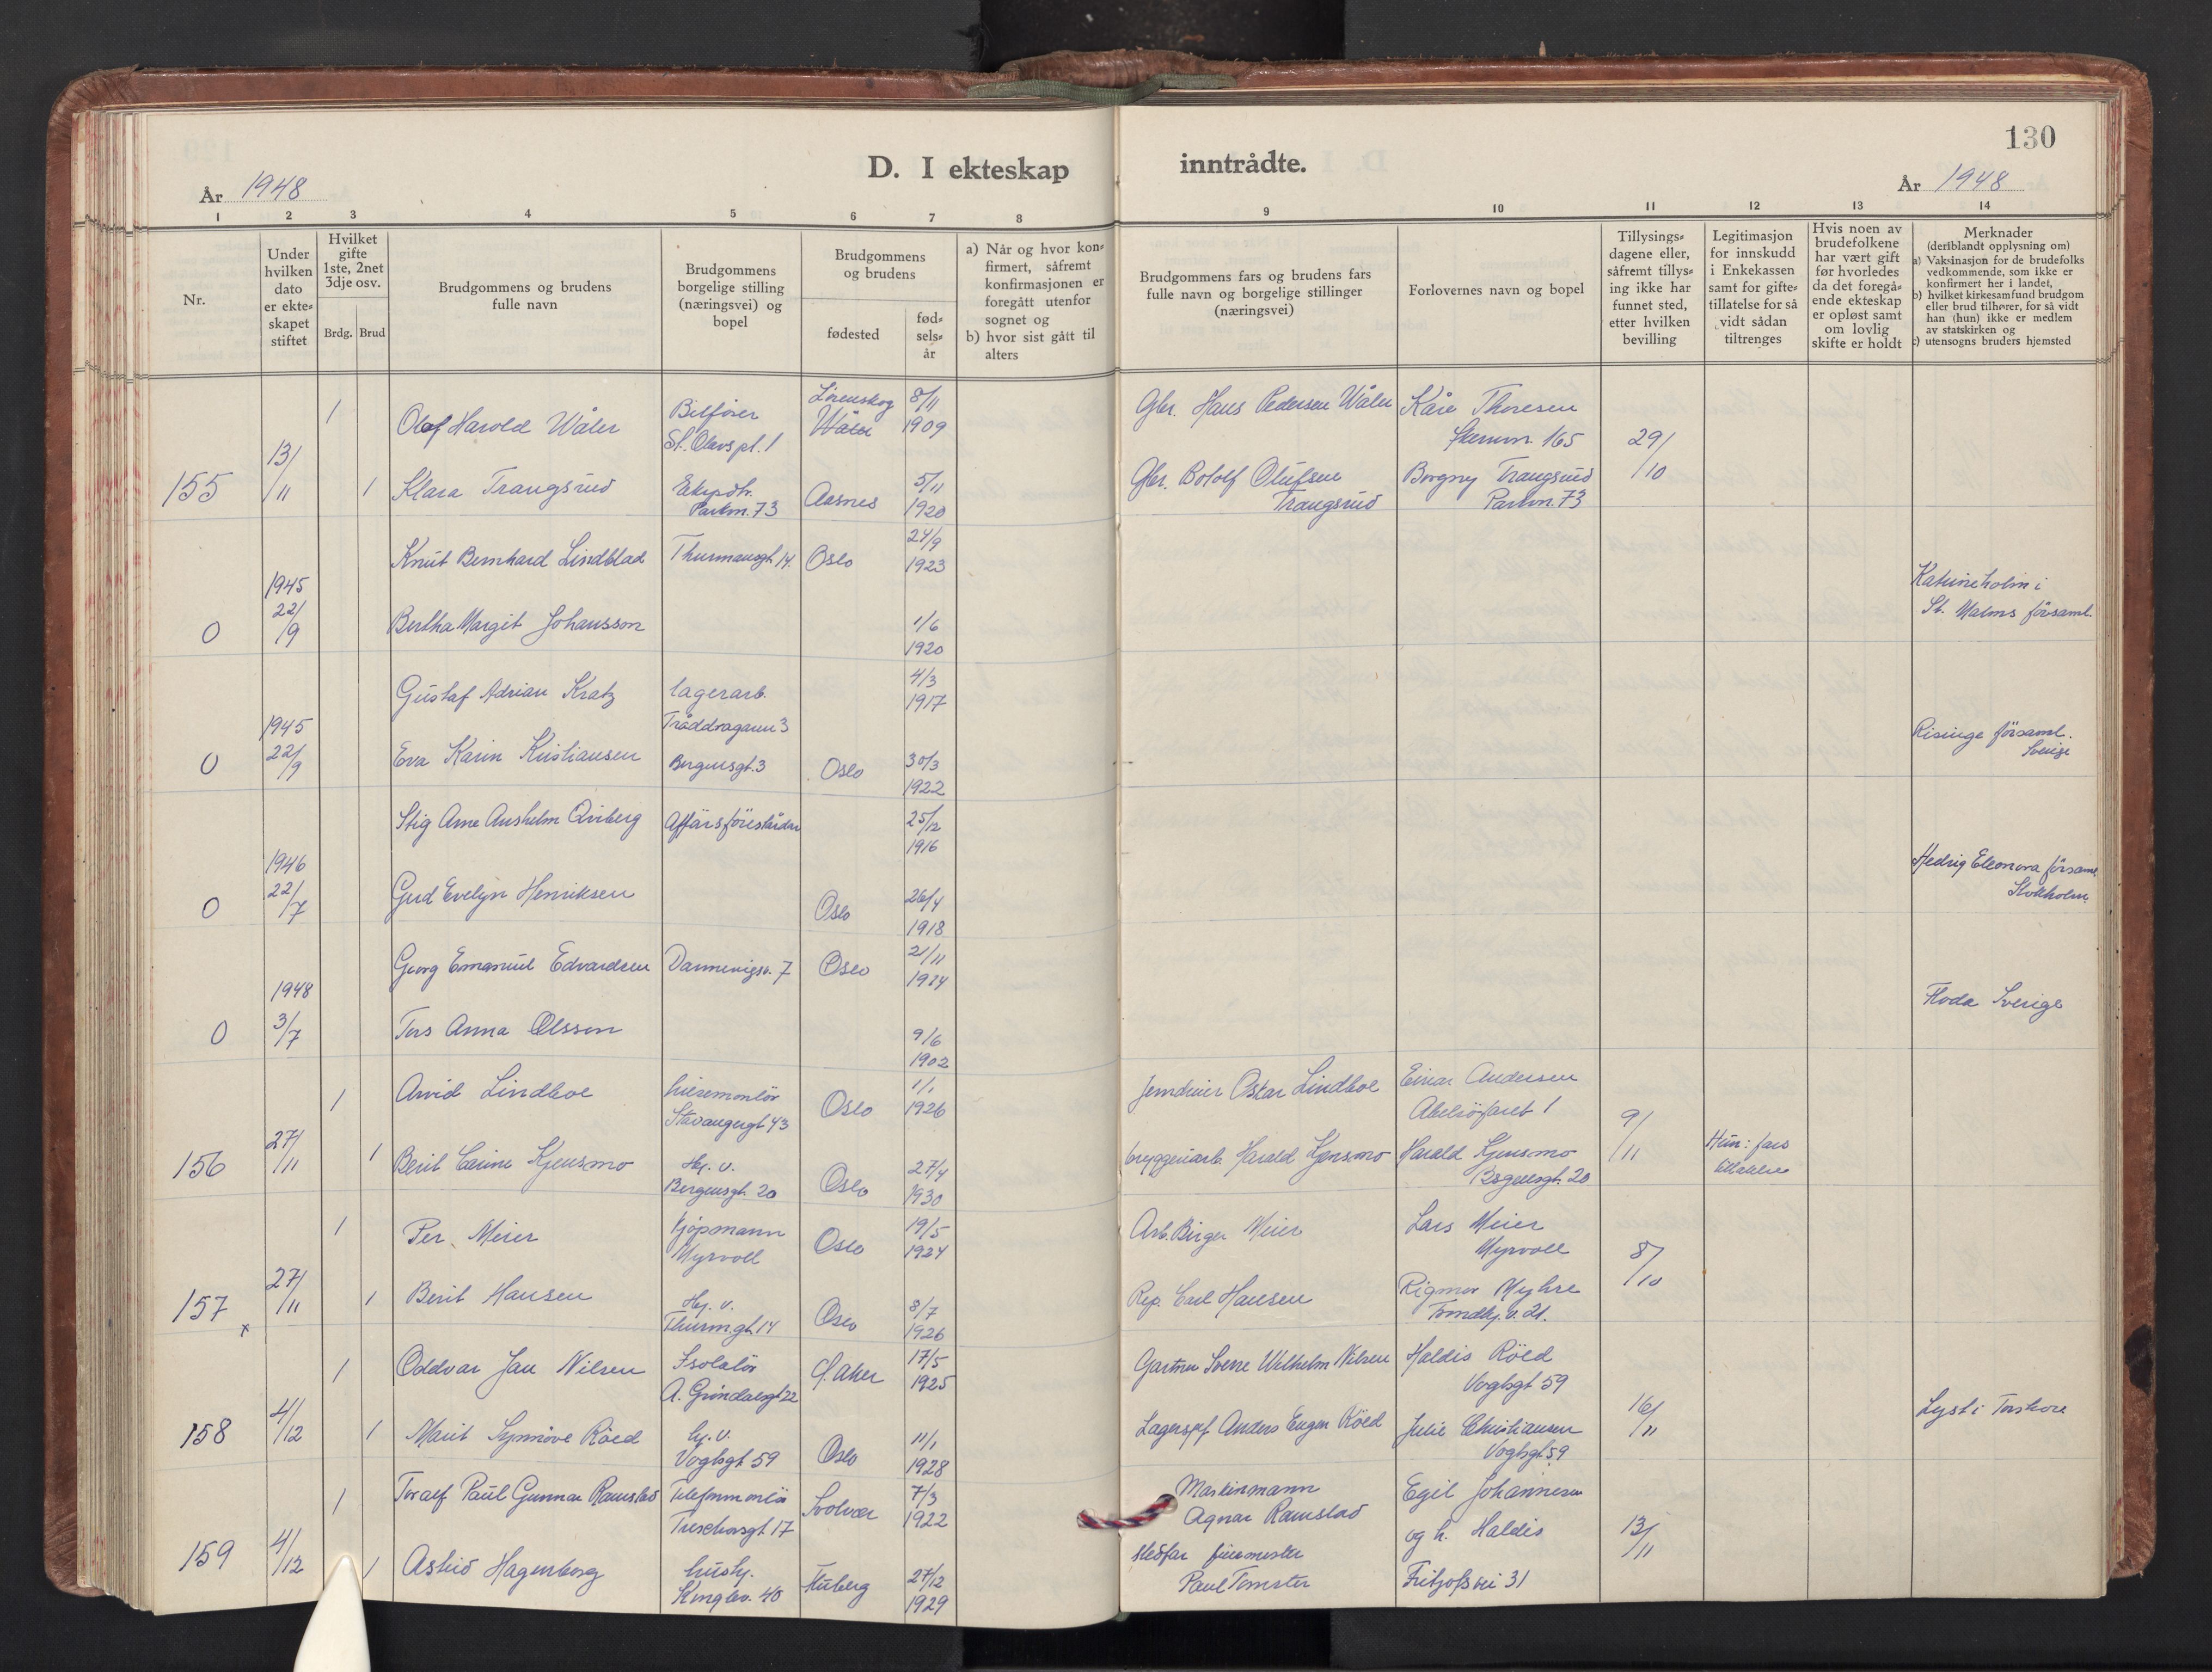 130
D. I ekteskap inntrådte.
År 1948
År 1948
1 2 3 4 5 6 7 8 9 10 11 12 13 14
Nr.
Under hvilken dato er ekte-skapet stiftet
Hvilket gifte 1ste, 2net 3dje osv.
Brdg. Brud
Brudgommens og brudens fulle navn
Brudgommens borgelige stilling (næringsvei) og bopel
Brudgommens og brudens
fødested
fød-sels-år
a) Når og hvor kon-firmert, såfremt konfirmasjonen er foregått utenfor sognet og
b) hvor sist gått til alters
Brudgommens fars og brudens fars fulle navn og borgelige stillinger (næringsvei)
Forlovernes navn og bopel
Tillysings-dagene eller, såfremt tillys-ing ikke har funnet sted, etter hvilken bevilling
Legitimasjon for innskudd i Enkekassen samt for gifte-tillatelse for så vidt sådan tiltrenges
Hvis noen av brudefolkene har vært gift før hvorledes da det foregå-ende ekteskap er opløst samt om lovlig skifte er holdt
Merknader
(deriblandt opplysning om)
a) Vaksinasjon for de brudefolks vedkommende, som ikke er konfirmert her i landet,
b) hvilket kirkesamfund brudgom eller brud tilhører, for så vidt han (hun) ikke er medlem av statskirken og
c) utensogns bruders hjemsted
155 13/11
1 Olaf Harold Wåler Bilfører St. Olavs pl. 1 Lørenskog Wåler 8/11 1909 Gbr. Hans Pedersen Wåler Kåre Thoresen 165 29/10
1 Klara Trangsrud Ekspdtr. Parkvn. 73 Aasnes 5/11 1920 Gbr. Botolf Olufsen Trangsrud Borgny Trangsrud Parkvn. 73
0 1945 22/9
Knut Bernhard Lindblad Thurmansgt. 14. Oslo 24/9 1923
Bertha Margit Johansson 1/6 1920
Katrineholm i St. Malms församl.
0 1945 22/9
Gustaf Adrian Kratz lagerarb. Tråddragaren 3 4/3 1917
Eva Karin Kristiansen Bergensgt. 3 Oslo 30/3 1922
Risinge församl. Sverige
0 1946 22/7
Stig Arne Anshelm Qviberg Affärsföreståndar 25/12 1916
Gerd Evelyn Henriksen Oslo 26/4 1918
Hedvig Eleonora församl. Stokholm.
0 1948 3/7
Georg Emanuel Edvardsen Dannevigsv. 7 Oslo 21/11 1914
Anna Olsson 9/6 1902
Floda Sverige
156 27/11
1 Arvid Lindboe heismontør Stavangergt 43 Oslo 1/1 1926 Jerndreier Oskar Lindboe Einar Andersen Abelsöfaret 1 9/11
1 Berit Carine Kjensmo Hj. v. Bergensgt. 20 Oslo 27/4 1930 bryggeriarb. Harald Kjensmo Harald Kjensmo Bergensgt. 20 Hun: fars tillatelse
157 x 27/11
1 Per Meier Kjøpmann Myrvoll Oslo 19/5 1924 Arb. Birger Meier Lars Meier Myrvoll 8/10
1 Berit Hansen Hj. v. Thurm.gt. 14 Oslo 8/7 1926 Rep. Carl Hansen Rigmor Myhre Trondhj. v. 21.
158 4/12
1 Oddvar Jan Nilsen Isolatør A. Grøndalsgt 22 Ø. Aker 17/5 1925 Gartner Sverre Wilhelm Nilsen Haldis Röed Vogtsgt 59 16/11
1 Marit Synnöve Röed hj. v. Vogtsgt 59 Oslo 11/1 1928 Anders Eugen Röed Julie Christiansen Vogtsgt 59
Lyst i Torshov
159 4/12
1 Toralf Paul Gunnar Ramstad Telefonmontör Treschowsgt 17 Svolvær 7/3 1922 Maskinmann Agnar Ramstad Egil Johannesen 13/11
1 Astrid Hagenborg hushj. 40 27/12 1929 stedfar Paul Tomster og h. Haldis Fritjofs vei 31